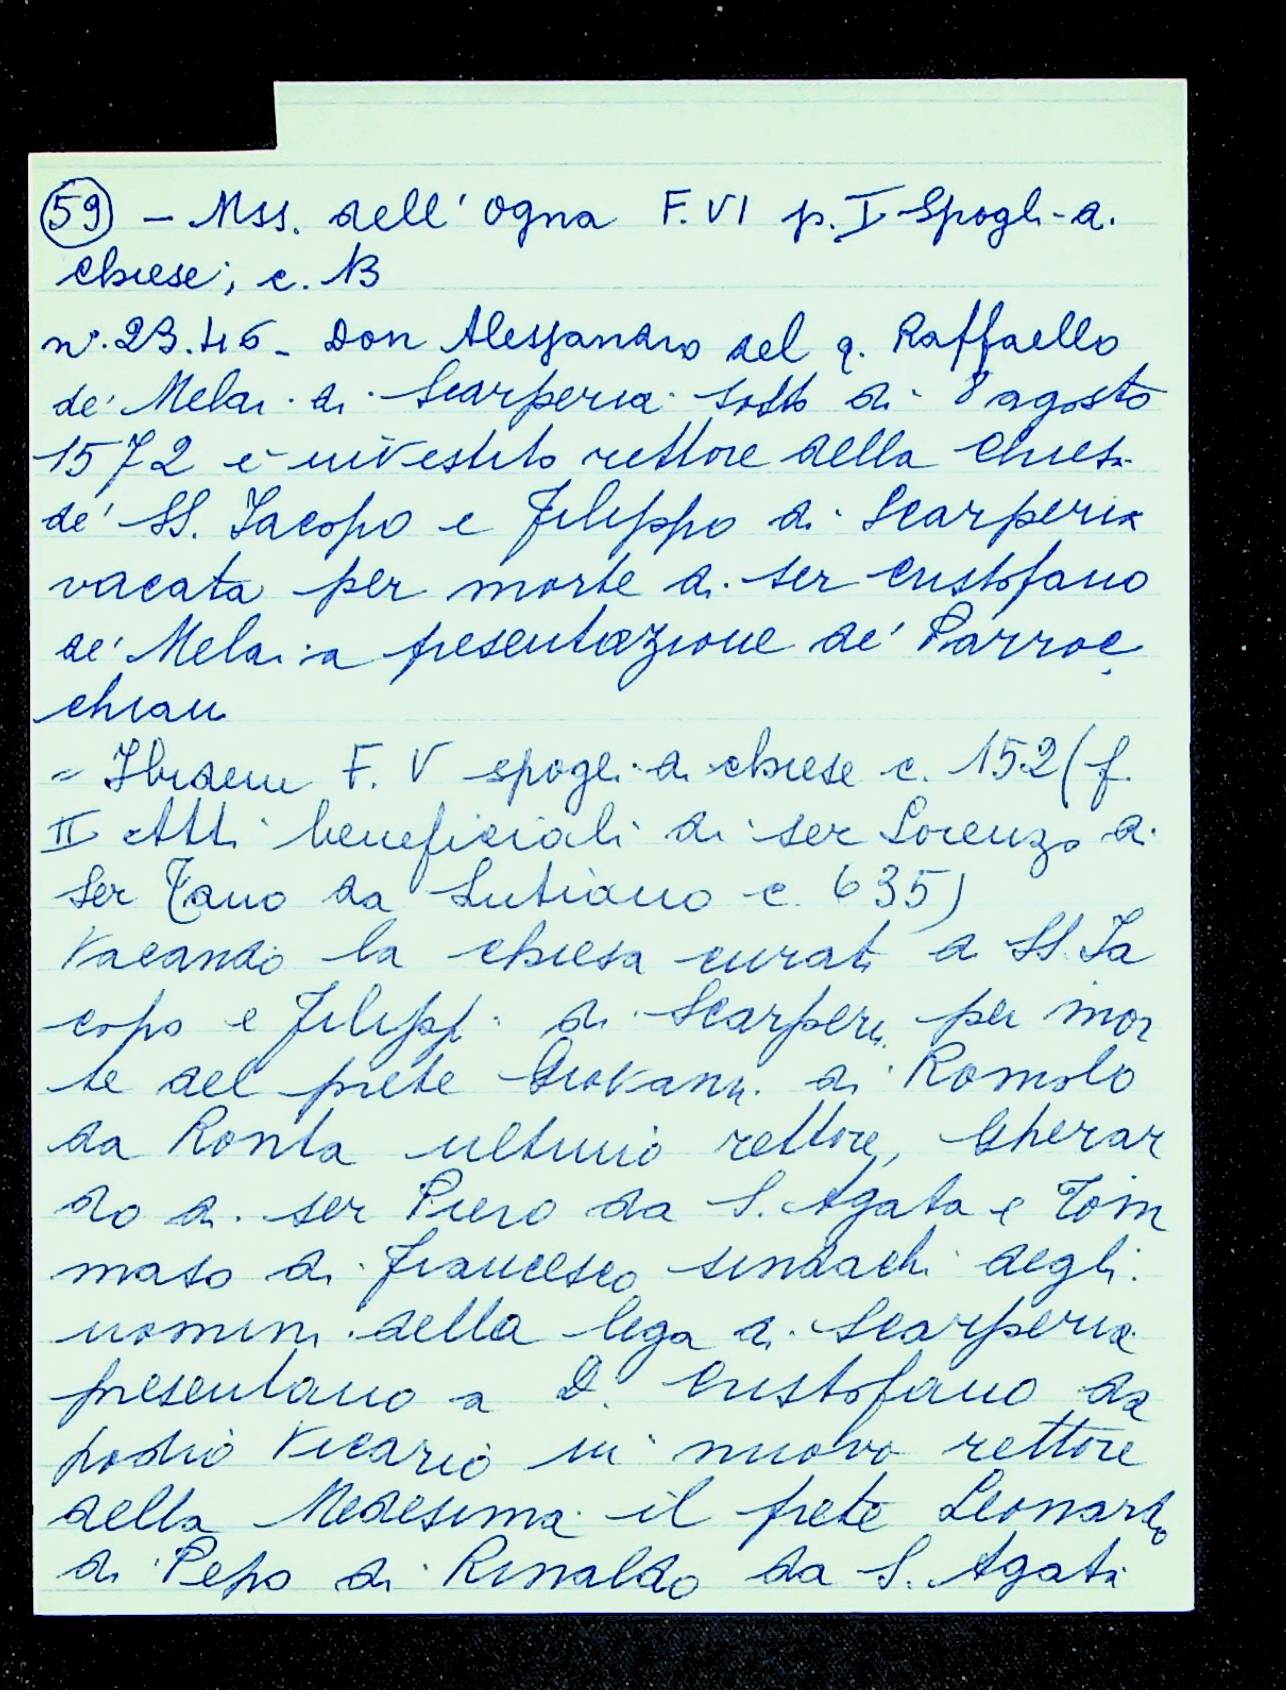 59 - Mss. dell'Ogna F. VI p. I Spogli di
chiese; c. 13
n°. 23.46 - Don Alessandro del q. Raffaello
de' Melai di Scarperia sotto di 8 agosto
1572 è investito rettore della Chiesa
de' SS. Iacopo e Filippo di Scarperia
vacata per morte di ser Cristofano
de' Melai a presentazione de' Parroc
chiani
= Ibidem F. V spogli di chiese c. 152 (f.
II Atti beneficiali di ser Lorenzo di
Ser Tano da Lutiano c. 635)
Vacando la chiesa curata di SS. Ia
copo e Filippo di Scarperia per mor
te del prete Giovanni di Romolo
da Ronta ultimo rettore, Gherar
do di ser Piero da S. Agata e Tom
maso di Francesco sindachi degli
uomini della lega di Scarperia
presentano a D. Cristofano da
podio Vicario in nuovo rettore
della Medesima il prete Leonardo
di Pepo di Rinaldo da S. Agata